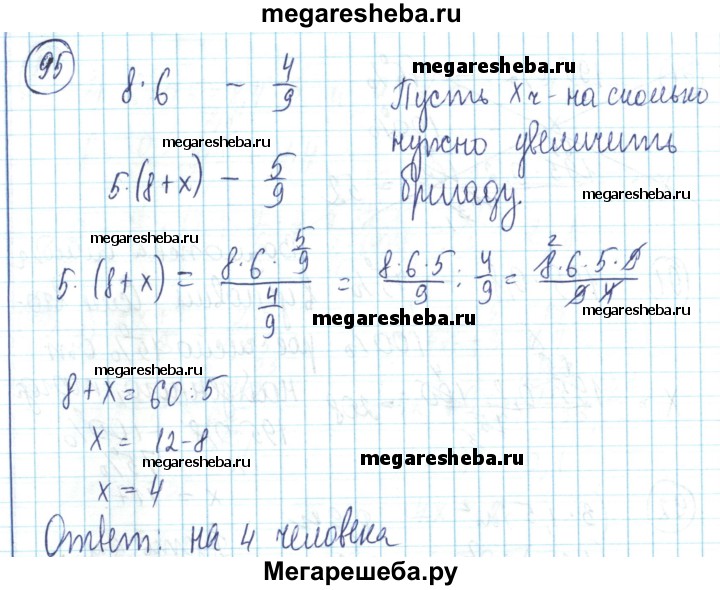 megaresheba.ru
95
8·6 – 4/9
megaresheba.ru
Пусть x ч - на сколько
megaresheba.ru
нужно увеличить
5·(8+x) – 5/9
megaresheba.ru
бригаду.
megaresheba.ru
5·(8+x) = (8·6·5/9)/(4/9) = (8·6·5)/9 : 4/9 = (8·6·5·9)/(9·4)
2
megaresheba.ru
megaresheba.ru
megaresheba.ru
8+x = 60:5
x = 12-8
megaresheba.ru
megaresheba.ru
x = 4
Ответ: на 4 человека
Мегарешеба.ру